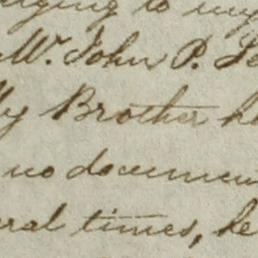 to my
W. John P.
My Brother
no documen
eral times, he